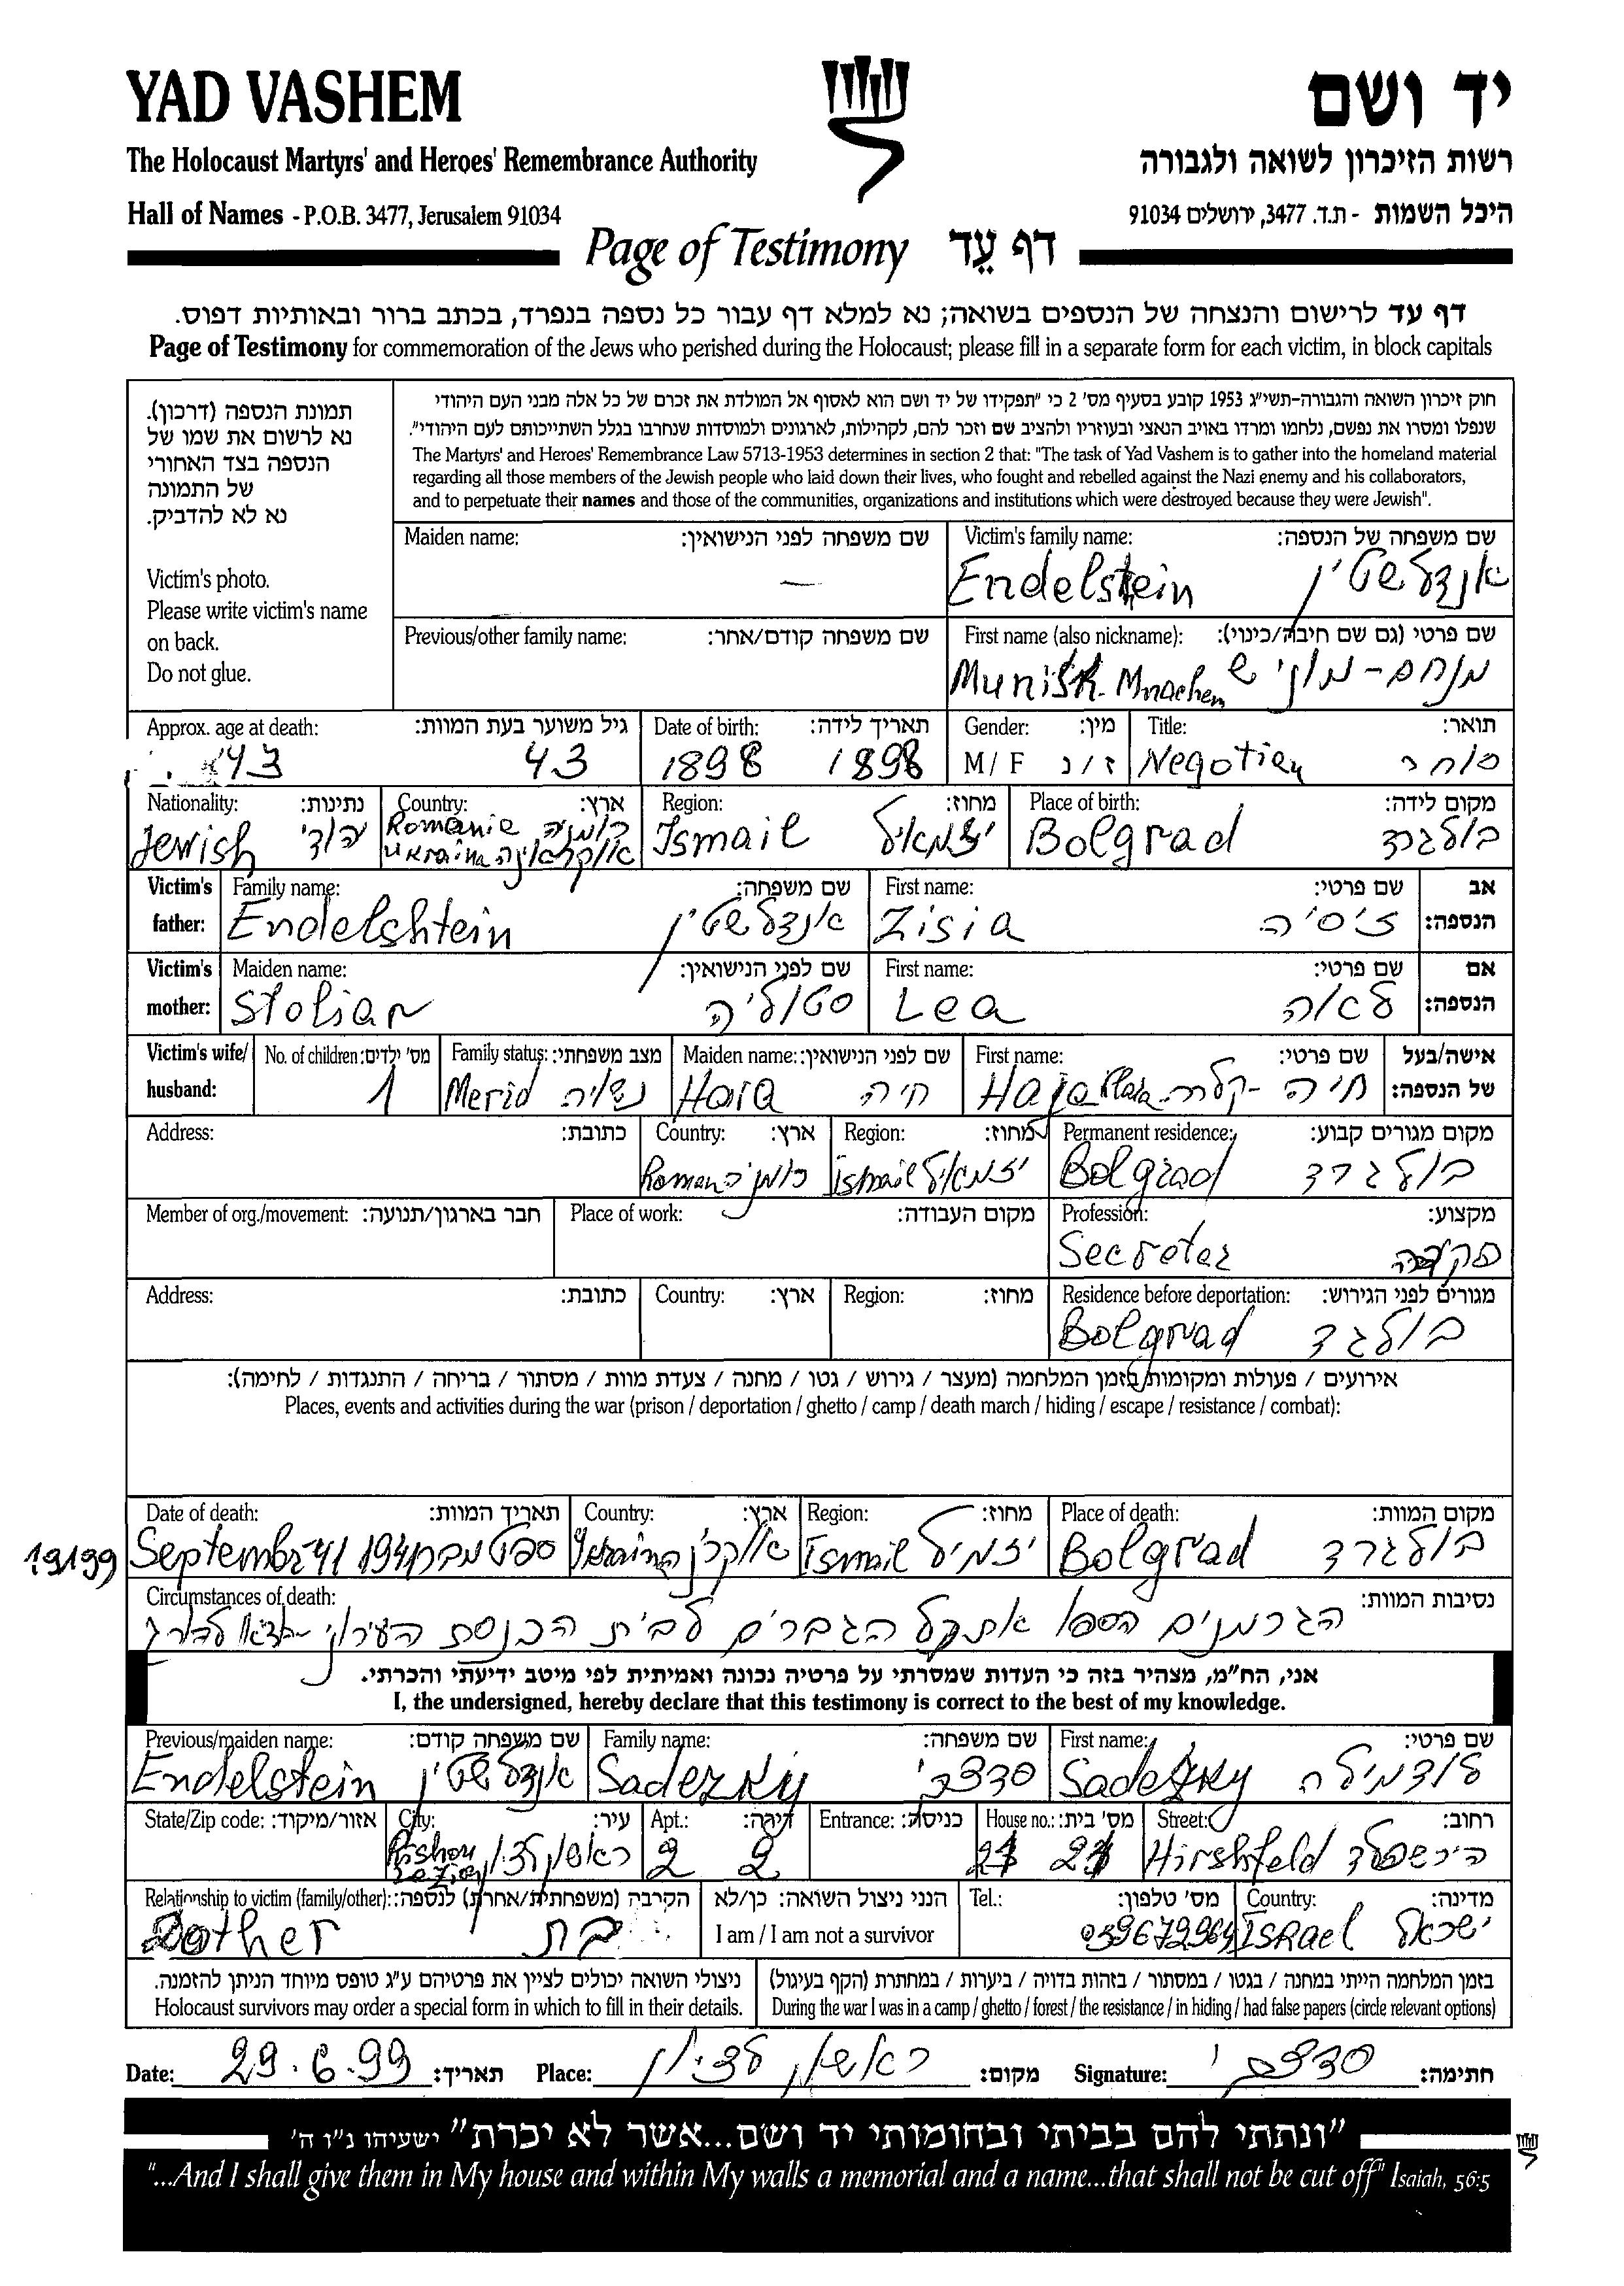 YAD VASHEM
יד ושם
The Holocaust Martyrs' and Heroes' Remembrance Authority
רשות הזיכרון לשואה ולגבורה
Hall of Names - P.O.B. 3477, Jerusalem 91034
היכל השמות - ת.ד. 3477, ירושלים 91034
Page of Testimony דף עֵד
דף עד לרישום והנצחה של הנספים בשואה; נא למלא דף עבור כל נספה בנפרד, בכתב ברור ובאותיות דפוס.
Page of Testimony for commemoration of the Jews who perished during the Holocaust; please fill in a separate form for each victim, in block capitals
תמונת הנספה (דרכון).
נא לרשום את שמו של
הנספה בצד האחורי
של התמונה
נא לא להדביק.
Victim's photo.
Please write victim's name
on back.
Do not glue.
חוק זיכרון השואה והגבורה-תשי"ג 1953 קובע בסעיף מס' 2 כי "תפקידו של יד ושם הוא לאסוף אל המולדת את זכרם של כל אלה מבני העם היהודי
שנפלו ומסרו את נפשם, נלחמו ומרדו באויב הנאצי ובעוזריו ולהציב שם וזכר להם, לקהילות, לארגונים ולמוסדות שנחרבו בגלל השתייכותם לעם היהודי".
The Martyrs' and Heroes' Remembrance Law 5713-1953 determines in section 2 that: "The task of Yad Vashem is to gather into the homeland material
regarding all those members of the Jewish people who laid down their lives, who fought and rebelled against the Nazi enemy and his collaborators,
and to perpetuate their names and those of the communities, organizations and institutions which were destroyed because they were Jewish".
Maiden name: שם משפחה לפני הנישואין: Victim's family name: שם משפחה של הנספה:
— Endelstein אנדלשטיין
Previous/other family name: שם משפחה קודם/אחר: First name (also nickname): שם פרטי (גם שם חיבה/כינוי):
Munish מנחם - מוניש
Approx. age at death: גיל משוער בעת המוות: Date of birth: תאריך לידה: Gender: מין: Title: תואר:
43 43 1898 1898 M / F ז / נ סוחר
Nationality: נתינות: Country: ארץ: Region: מחוז: Place of birth: מקום לידה:
Jewish יהודי Romanie רומניה Ismail יזמאיל Bolgrad בולגרד
Ukraina אוקראינה
Victim's father: Family name: שם משפחה: First name: שם פרטי: אב הנספה:
Endelshtein אנדלשטיין Zisia זיסיה
Victim's mother: Maiden name: שם לפני הנישואין: First name: שם פרטי: אם הנספה:
Stoliar Lea לאה
Victim's wife/husband: No. of children: מס' ילדים: Family status: מצב משפחתי: Maiden name: שם לפני הנישואין: First name: שם פרטי: אישה/בעל של הנספה:
1 Merid נשוי חיה Haja חיה - קלרה
Address: כתובת: Country: ארץ: Region: מחוז: Permanent residence: מקום מגורים קבוע:
ismail יזמאיל Bolgrad בולגרד
Member of org./movement: חבר בארגון/תנועה: Place of work: מקום העבודה: Profession: מקצוע:
Secreter
Address: כתובת: Country: ארץ: Region: מחוז: Residence before deportation: מגורים לפני הגירוש:
Bolgrad בולגרד
אירועים / פעולות ומקומות בזמן המלחמה (מעצר / גירוש / גטו / מחנה / צעדת מוות / מסתור / בריחה / התנגדות / לחימה):
Places, events and activities during the war (prison / deportation / ghetto / camp / death march / hiding / escape / resistance / combat):
Date of death: תאריך המוות: Country: ארץ: Region: מחוז: Place of death: מקום המוות:
September 41 ספטמבר 1941 Ismail יזמיל Bolgrad בולגרד
Circumstances of death: נסיבות המוות:
הגרמנים אספו את כל הגברים לבית הכנסת העירוני
אני, הח"מ, מצהיר בזה כי העדות שמסרתי על פרטיה נכונה ואמיתית לפי מיטב ידיעתי והכרתי.
I, the undersigned, hereby declare that this testimony is correct to the best of my knowledge.
Previous/maiden name: שם משפחה קודם: Family name: שם משפחה: First name: שם פרטי:
Endelstein אנדלשטיין Sadezky סדצקי Sadezky לודמילה
State/Zip code: אזור/מיקוד: City: עיר: Apt.: דירה: Entrance: כניסה: House no.: מס' בית: Street: רחוב:
Rishon Lezion ראשון לציון 2 2 21 21 Hirshfeld הירשפלד
Relationship to victim (family/other): הקרבה (משפחתית/אחרת) לנספה: הנני ניצול השואה: כן/לא Tel.: מס' טלפון: Country: מדינה:
Dother בת I am / I am not a survivor 039672964 Israel ישראל
ניצולי השואה יכולים לציין את פרטיהם ע"ג טופס מיוחד הניתן להזמנה. בזמן המלחמה הייתי במחנה / בגטו / במסתור / בזהות בדויה / ביערות / במחתרת (הקף בעיגול)
Holocaust survivors may order a special form in which to fill in their details. During the war I was in a camp / ghetto / forest / the resistance / in hiding / had false papers (circle relevant options)
Date: 29.6.99 תאריך: Place: ראשון לציון מקום: Signature: סדצקי חתימה:
"ונתתי להם בביתי ובחומותי יד ושם...אשר לא יכרת" ישעיהו נ"ו ה'
"...And I shall give them in My house and within My walls a memorial and a name...that shall not be cut off" Isaiah, 56:5